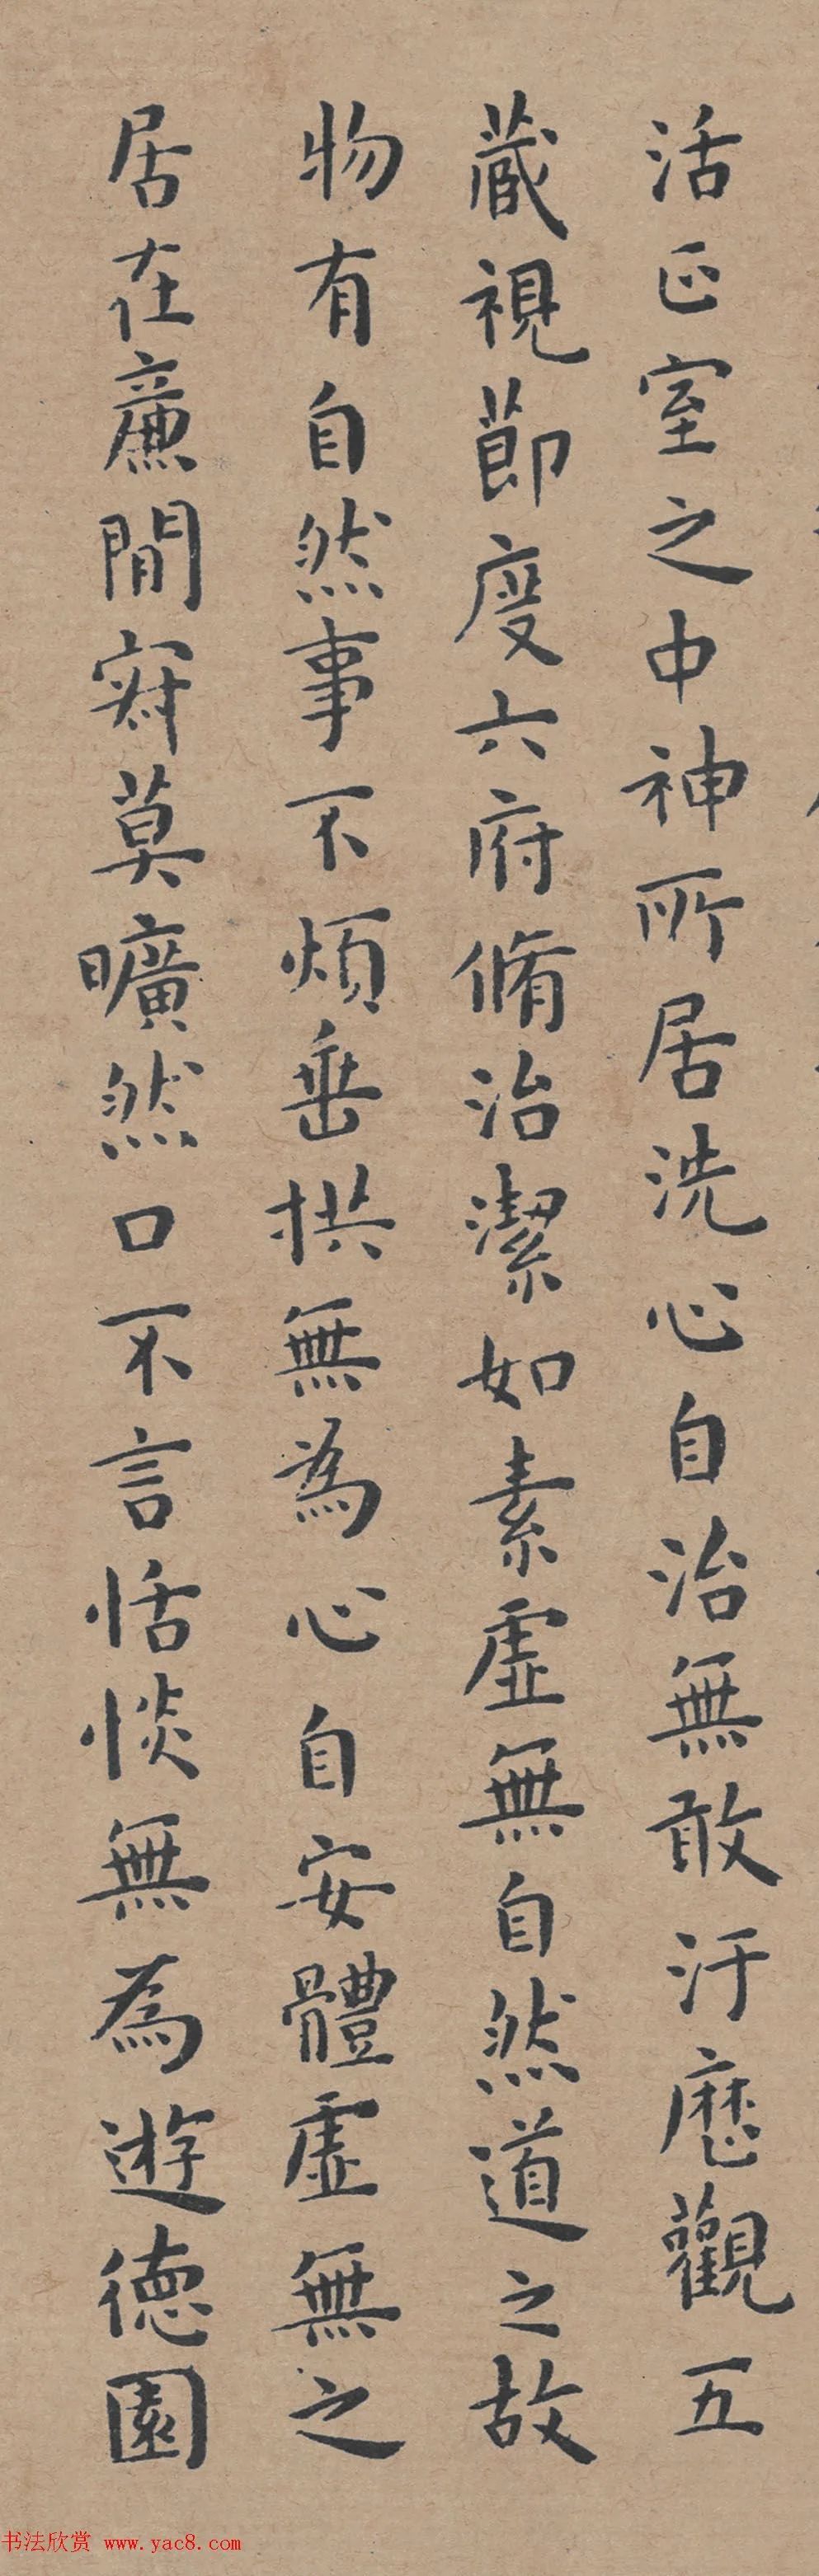 活正室之中神所居洗心自治無敢汙歷觀五
藏視節度六府脩治潔如素虛無自然道之故
物有自然事不煩垂拱無為心自安體虛無之
居在廉間寂莫曠然口不言恬惔無為遊德園
书法欣赏 www.yac8.com